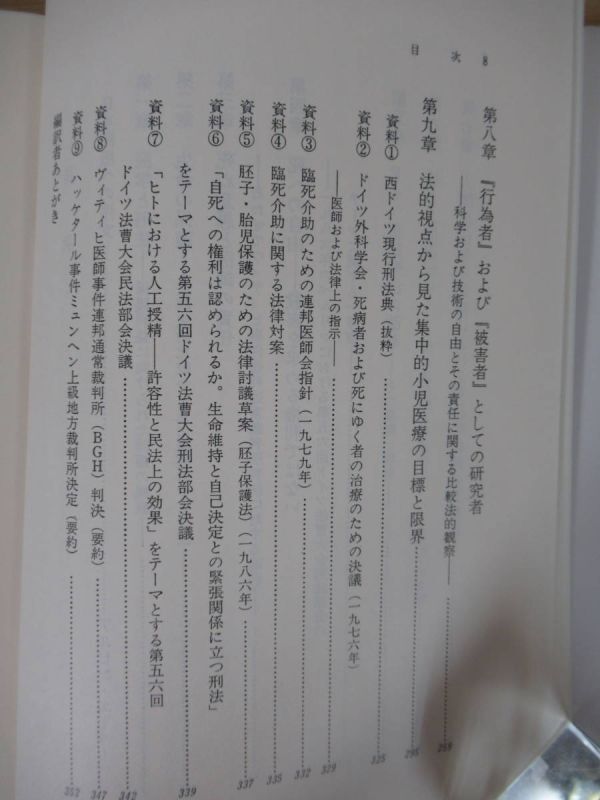 目次 8
第八章 『行為者』および『被害者』としての研究者
――科学および技術の自由とその責任に関する比較法的観察―― 259
第九章 法的視点から見た集中的小児医療の目標と限界 295
資料① 西ドイツ現行刑法典(抜粋) 325
資料② ドイツ外科学会・死病者および死にゆく者の治療のための決議(一九七六年)
――医師および法律上の指示―― 329
資料③ 臨死介助のための連邦医師会指針(一九七九年) 332
資料④ 臨死介助に関する法律対案 335
資料⑤ 胚子・胎児保護のための法律討議草案(胚子保護法)(一九八六年) 337
資料⑥ 「自死への権利は認められるか。生命維持と自己決定との緊張関係に立つ刑法」
をテーマとする第五六回ドイツ法曹大会刑法部会決議 339
資料⑦ 「ヒトにおける人工授精――許容性と民法上の効果」をテーマとする第五六回
ドイツ法曹大会民法部会決議 342
資料⑧ ヴィティヒ医師事件連邦通常裁判所(BGH)判決(要約) 347
資料⑨ ハッケタール事件ミュンヘン上級地方裁判所決定(要約) 352
編訳者あとがき